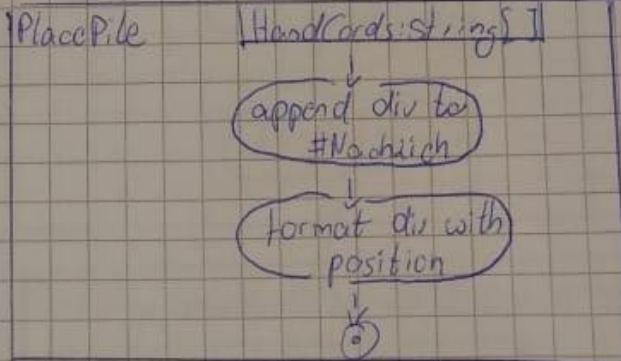 PlacePile
HandCards:string[]
append div to
#Nachzieh
format div with
position